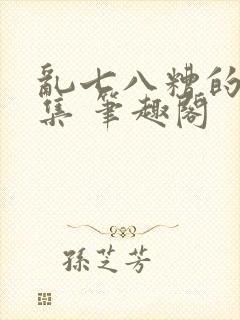 亂七八糟的
集 筆趣閣
孫芝芳